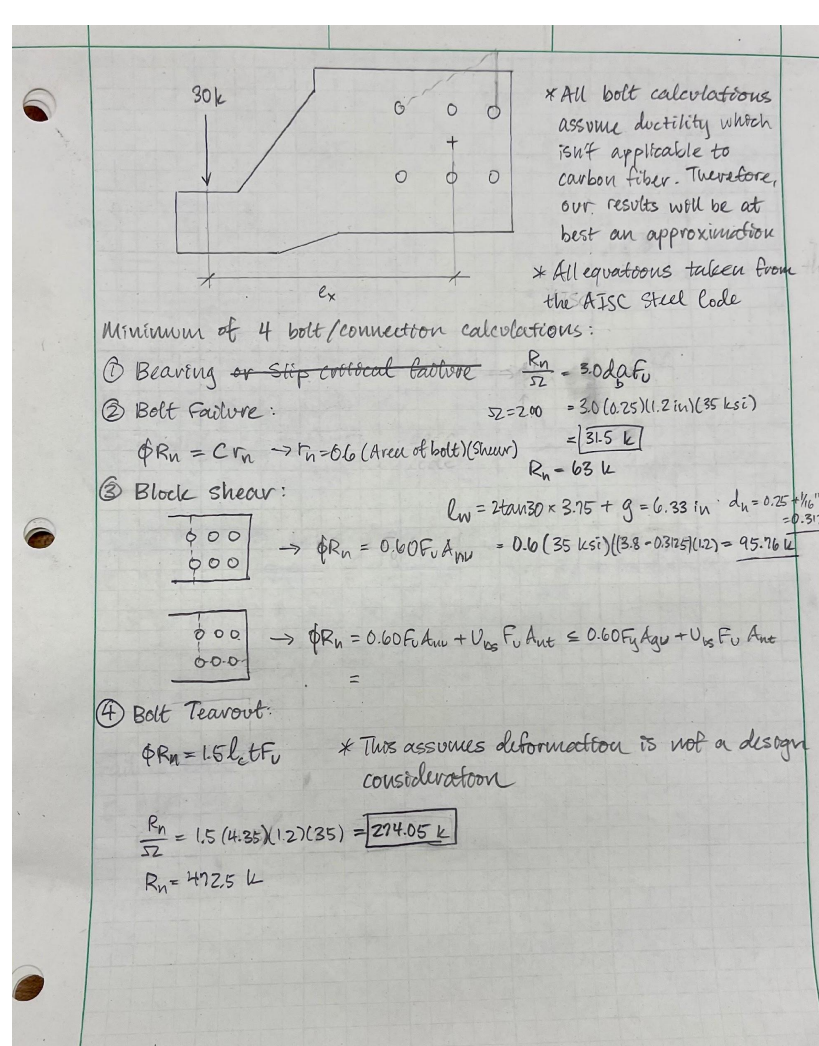 30k
* All bolt calculations
assume ductility which
isn't applicable to
carbon fiber. Therefore,
our results will be at
best an approximation
* All equations taken from
the AISC Steel Code
+
eₓ
Minimum of 4 bolt/connection calculations:
① Bearing or Slip critical failure Rn/Ω = 3.0d_b F_u
② Bolt Failure: Ω=2.00 = 3.0(0.25)(1.2 in)(35 ksi)
= 31.5 k
ϕRn = C rn → rn=0.6 (Area of bolt)(Shear)
Rn = 63 k
③ Block shear:
lw = 2tan30 × 3.75 + g = 6.33 in dn = 0.25 + 1/16"
=0.31
→ ϕRn = 0.60FuAnv = 0.6(35 ksi)((3.8-0.3125)(1.2) = 95.76 k
→ ϕRn = 0.60FuAnv + Ubs Fu Ant ≤ 0.60FyAgv + Ubs Fu Ant
=
④ Bolt Tearout:
ϕRn = 1.5 lc t Fu * This assumes deformation is not a design
consideration
Rn/Ω = 1.5 (4.35)(1.2)(35) = 274.05 k
Rn = 472.5 k